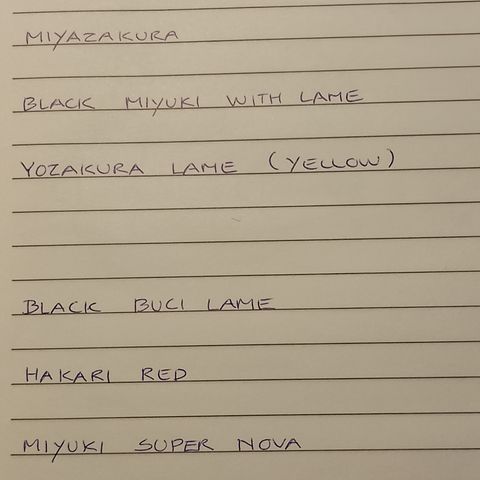 MIYAZAKURA
BLACK MIYUKI WITH LAME
YOZAKURA LAME (YELLOW)
BLACK BUCI LAME
HAKARI RED
MIYUKI SUPER NOVA